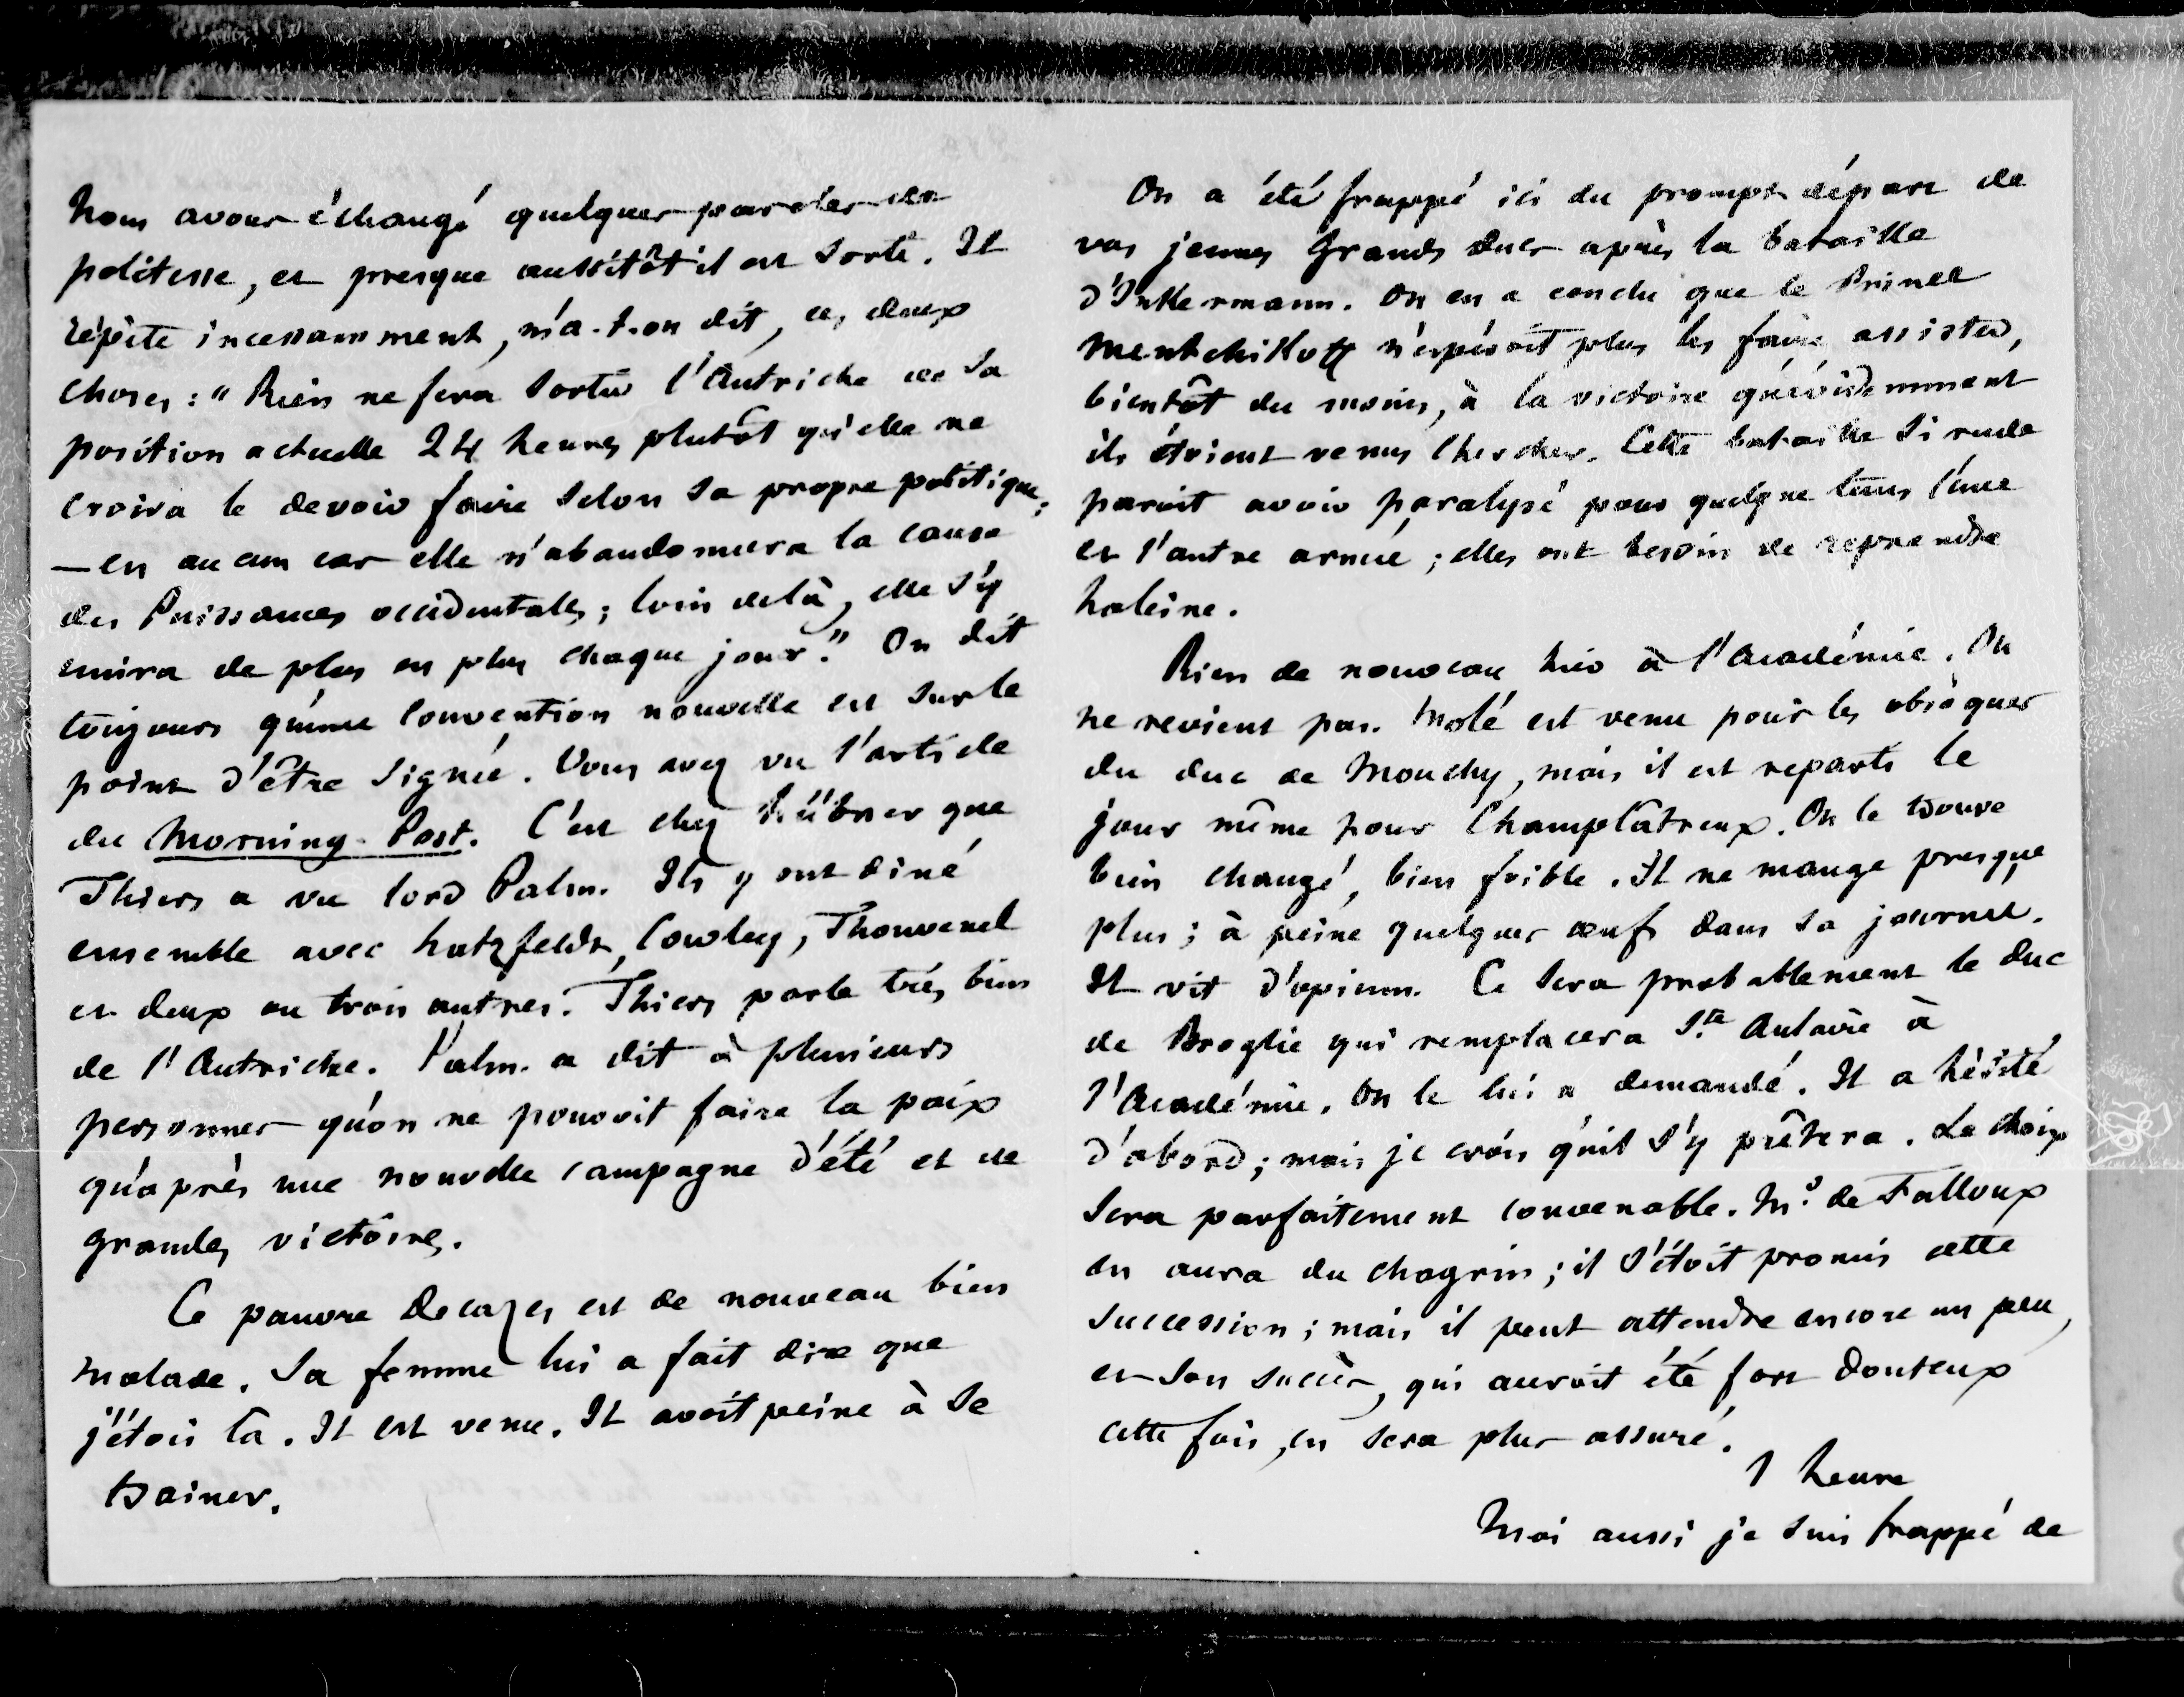 Nous avons échangé quelques paroles de
politesse, et presque aussitôt il est sorti. Il
répète incessamment, m'a-t-on dit, ces deux
choses : " Rien ne fera sortir l'Autriche de sa
position actuelle 24 heures plutôt qu'elle ne
croira le devoir faire selon sa propre politique ;
— en aucun cas elle n'abandonnera la cause
des Puissances occidentales ; loin delà, elle s'y
unira de plus en plus chaque jour." On dit
toujours qu'une convention nouvelle est sur le
point d'être signée. Vous avez vu l'article
du Morning-Post. C'est chez Hübner que
Thiers a vu lord Palm. Ils y ont diné
ensemble avec Hatzfeldt, Cowley, Thouvenel
et deux ou trois autres. Thiers parle très bien
de l'Autriche. Palm. a dit à plusieurs
personnes qu'on ne pouvoit faire la paix
qu'après une nouvelle campagne d'été et de
grandes victoires.
Ce pauvre Decazes est de nouveau bien
malade. Sa femme lui a fait dire que
j'étois là. Il est venu. Il avoit peine à se
trainer.
On a été frappé ici du prompt départ de
vos jeunes Grands ducs après la bataille
d'Inkermann. On en a conclu que le Prince
Mentchikoff n'espéroit plus les faire assister,
bientôt du moins, à la victoire qu'évidemment
ils étoient venus chercher. Cette bataille si rude
paroit avoir paralysé pour quelque tems l'une
et l'autre armée ; elles ont besoin de reprendre
haleine.
Rien de nouveau hier à l'Académie. On
ne revient pas. Molé est venu pour les obsèques
du duc de Mouchy, mais il est reparti le
jour même pour Champlâtreux. On le trouve
bien changé, bien foible. Il ne mange presque
plus ; à peine quelques œufs dans sa journée.
Il vit d'opium. Ce sera probablement le duc
de Broglie qui remplacera Ste Aulaire à
l'Académie. On le lui a demandé. Il a hésité
d'abord ; mais je crois qu'il s'y prêtera. Le choix
sera parfaitement convenable. Mr de Falloux
en aura du chagrin ; il s'étoit promis cette
succession ; mais il peut attendre encore un peu,
et son succès, qui auroit été fort douteux
cette fois, en sera plus assuré.
1 heure
Moi aussi je suis frappé de